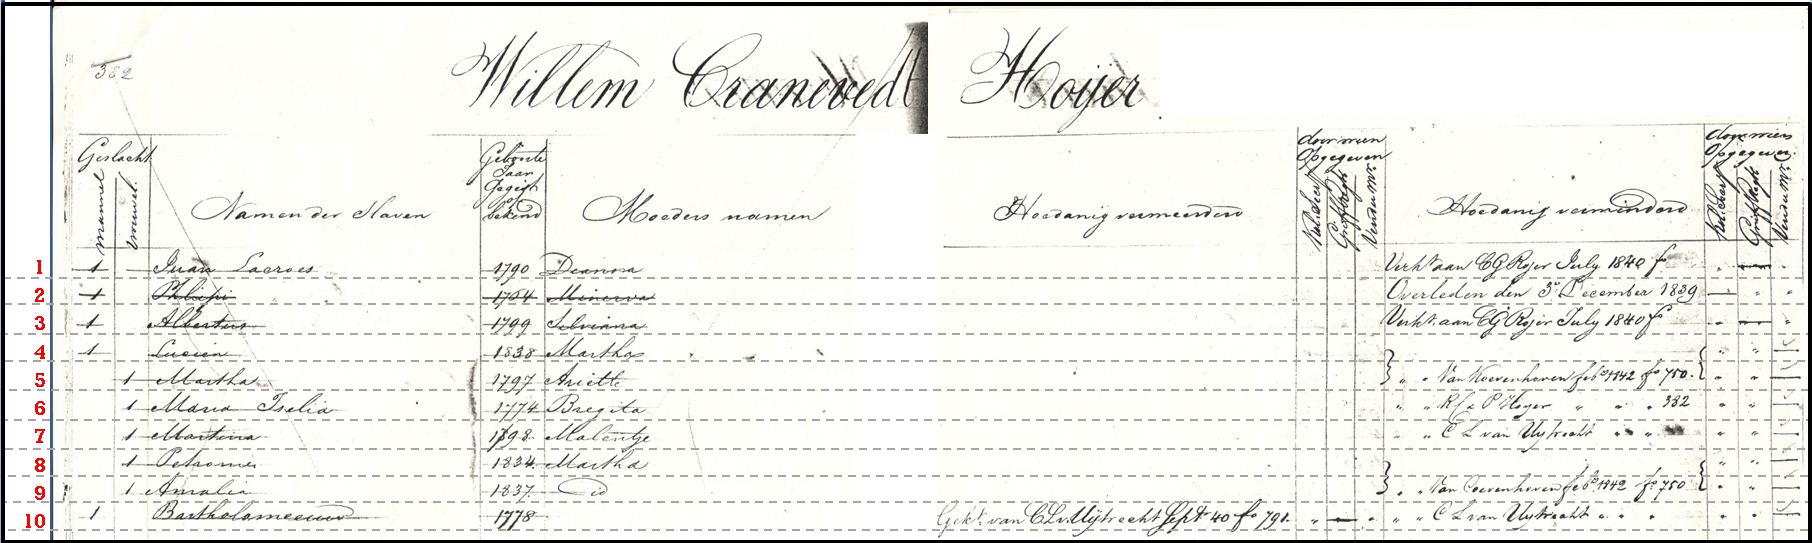 382
Willem Cranevedt Hoijer
Geslacht
mannel
vrouwel.
Namen der Slaven
Geboorte Jaar Gegist of bekend
Moeders namen
Hoedanig vermeerderd
door wien Opgegeven
Hoedanig verminderd
door wien Opgegeven
1 1 Juan Lacroes 1790 Deanora Verkt aan CG Rojer July 1840 f
2 1 Philipi 1754 Minerva Overleden den 3 December 1839
3 1 Albertus 1799 Silviana Verkt. aan CG Rojer July 1840 fo
4 1 Lucien 1838 Martha
5 1 Martha 1797 Ariette " " Van Koevenhoven feb 1842 fo 750.
6 1 Maria Iselia 1774 Bregita " " P Hoyer " " " 382
7 1 Martina 1798 Malentje " " C L van Uytrecht " "
8 1 Petronie 1834 Martha
9 1 Amalia 1837 id " " Van Coevenhoven feb 1842 fo 750
10 1 Bartholomeeuw 1778 Gekt. van C L v. Uijtrecht Sept 40 fo 791. " " C L van Uytrecht " " "